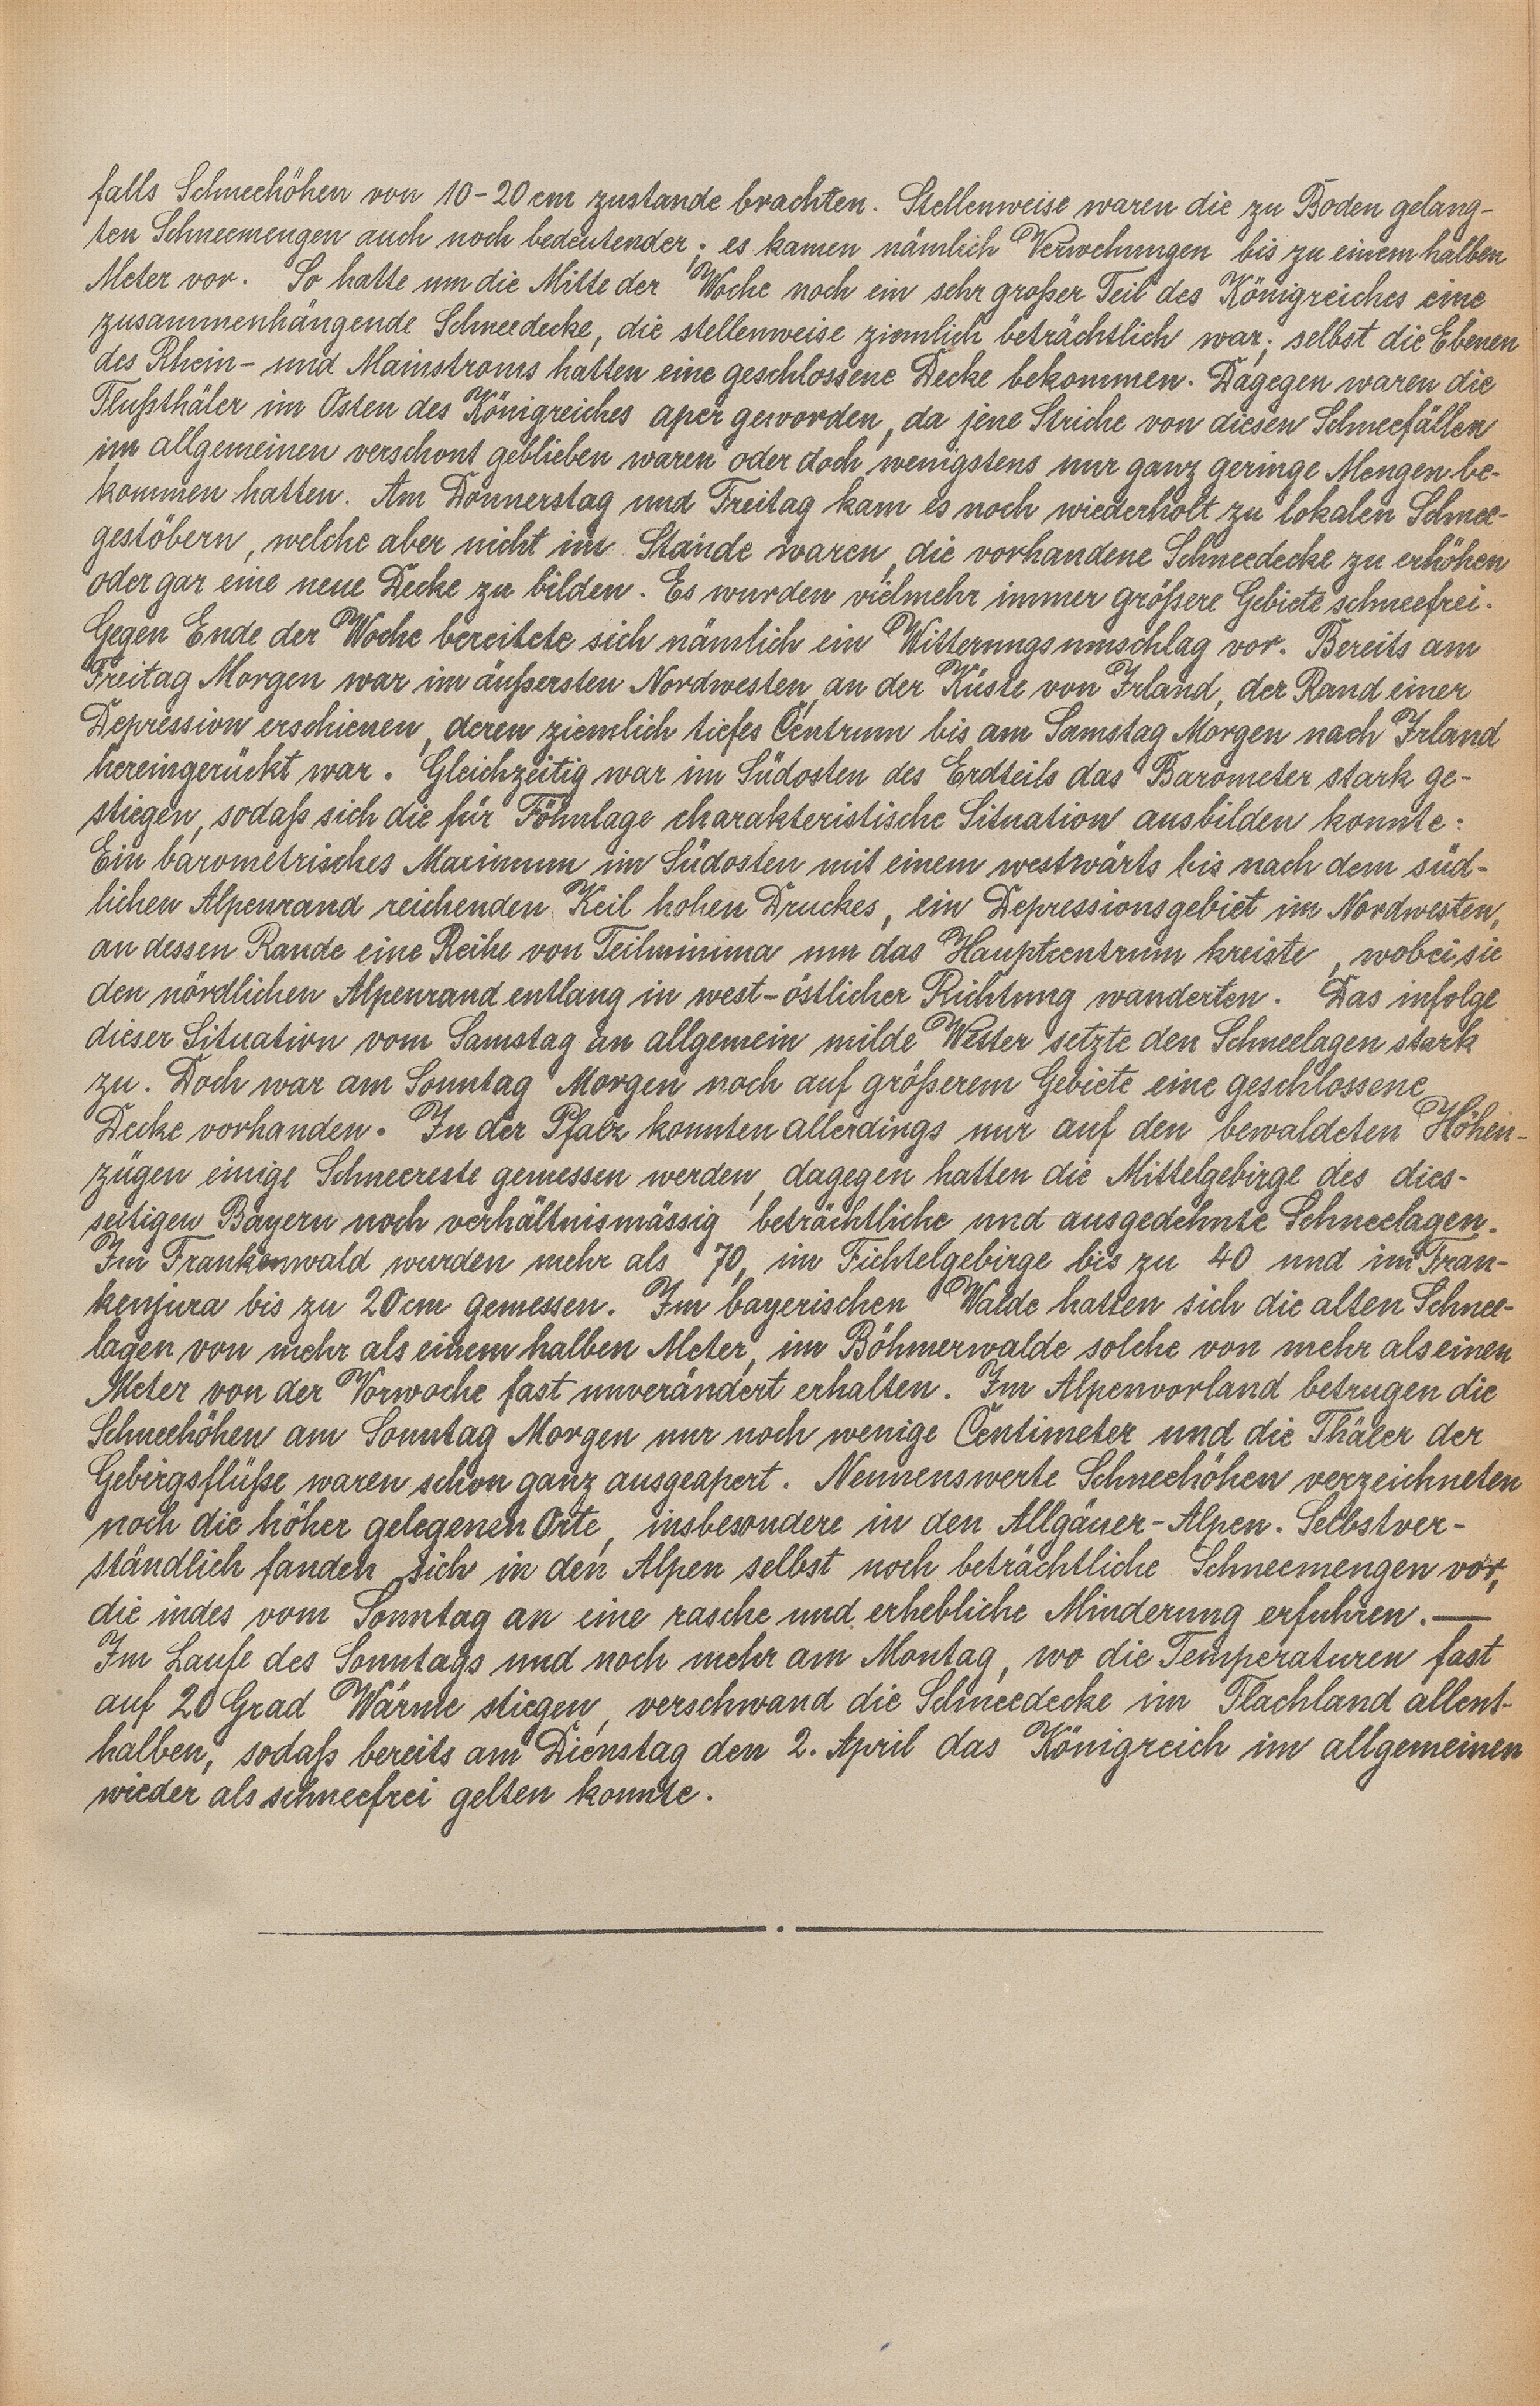 falls Schneehöhen von 10-20 cm zustande brachten. Stellenweise waren die zu Boden gelang-
ten Schneemengen auch noch bedeutender; es kamen nämlich Verwehungen bis zu einem halben
Meter vor. So hatte um die Mitte der Woche noch ein sehr großer Teil des Königreiches eine
zusammenhängende Schneedecke, die stellenweise ziemlich beträchtlich war; selbst die Ebenen
des Rhein- und Mainstroms hatten eine geschlossene Decke bekommen. Dagegen waren die
Flußthäler im Osten des Königreiches aper geworden, da jene Striche von diesen Schneefällen
im allgemeinen verschont geblieben waren oder doch wenigstens nur ganz geringe Mengen be-
kommen hatten. Am Donnerstag und Freitag kam es noch wiederholt zu lokalen Schnee-
gestöbern, welche aber nicht im Stande waren, die vorhandene Schneedecke zu erhöhen
oder gar eine neue Decke zu bilden. Es wurden vielmehr immer größere Gebiete schneefrei.
Gegen Ende der Woche bereitete sich nämlich ein Witterungsumschlag vor. Bereits am
Freitag Morgen war im äußersten Nordwesten, an der Küste von Irland, der Rand einer
Depression erschienen, deren ziemlich tiefes Centrum bis am Samstag Morgen nach Irland
hereingerückt war. Gleichzeitig war im Südosten des Erdteils das Barometer stark ge-
stiegen, sodaß sich die für Föhnlage charakteristische Situation ausbilden konnte:
Ein barometrisches Maximum im Südosten mit einem westwärts bis nach dem süd-
lichen Alpenrand reichenden Keil hohen Druckes, ein Depressionsgebiet im Nordwesten,
an dessen Rande eine Reihe von Teilminima um das Hauptcentrum kreiste, wobei sie
den nördlichen Alpenrand entlang in west-östlicher Richtung wanderten. Das infolge
dieser Situation vom Samstag an allgemein milde Wetter setzte den Schneelagen stark
zu. Doch war am Sonntag Morgen noch auf größerem Gebiete eine geschlossene
Decke vorhanden. In der Pfalz konnten allerdings nur auf den bewaldeten Höhen-
zügen einige Schneereste gemessen werden, dagegen hatten die Mittelgebirge des dies-
seitigen Bayern noch verhältnismässig beträchtliche und ausgedehnte Schneelagen.
Im Frankenwald wurden mehr als 70, im Fichtelgebirge bis zu 40 und im Fran-
kenjura bis zu 20 cm gemessen. Im bayerischen Walde hatten sich die alten Schnee-
lagen von mehr als einem halben Meter, im Böhmerwalde solche von mehr als einen
Meter von der Vorwoche fast unverändert erhalten. Im Alpenvorland betrugen die
Schneehöhen am Sonntag Morgen nur noch wenige Centimeter und die Thäler der
Gebirgsflüße waren schon ganz ausgeapert. Nennenswerte Schneehöhen verzeichneten
noch die höher gelegenen Orte, insbesondere in den Allgäuer-Alpen. Selbstver-
ständlich fanden sich in den Alpen selbst noch beträchtliche Schneemengen vor,
die indes vom Sonntag an eine rasche und erhebliche Minderung erfuhren. —
Im Laufe des Sonntags und noch mehr am Montag, wo die Temperaturen fast
auf 20 Grad Wärme stiegen, verschwand die Schneedecke im Flachland allent-
halben, sodaß bereits am Dienstag den 2. April das Königreich im allgemeinen
wieder als schneefrei gelten konnte.